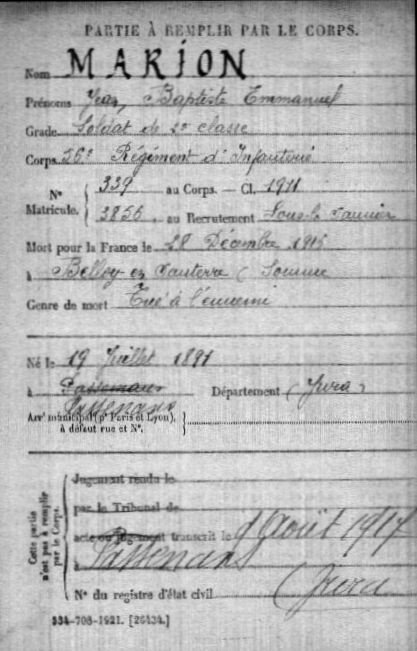 PARTIE À REMPLIR PAR LE CORPS.
Nom MARION
Prénoms Jean, Baptiste Emmanuel
Grade Soldat de 2e classe
Corps 56e Régiment d'Infanterie
N° Matricule. { 339 au Corps. — Cl. 1911
3856 au Recrutement Lons-le-Saunier
Mort pour la France le 28 Décembre 1915
à Belloy en Santerre (Somme
Genre de mort Tué à l'ennemi
Né le 19 Juillet 1891
à Passenans Département (Jura)
Passenans
Arrt municipal (pr Paris et Lyon),
à défaut rue et N°.
Cette partie n'est pas à remplir par le Corps.
Jugement rendu le
par le Tribunal de
acte ou jugement transcrit le 9 Août 1917
à Passenans
(Jura
N° du registre d'état civil
534-708-1921. [26434.]